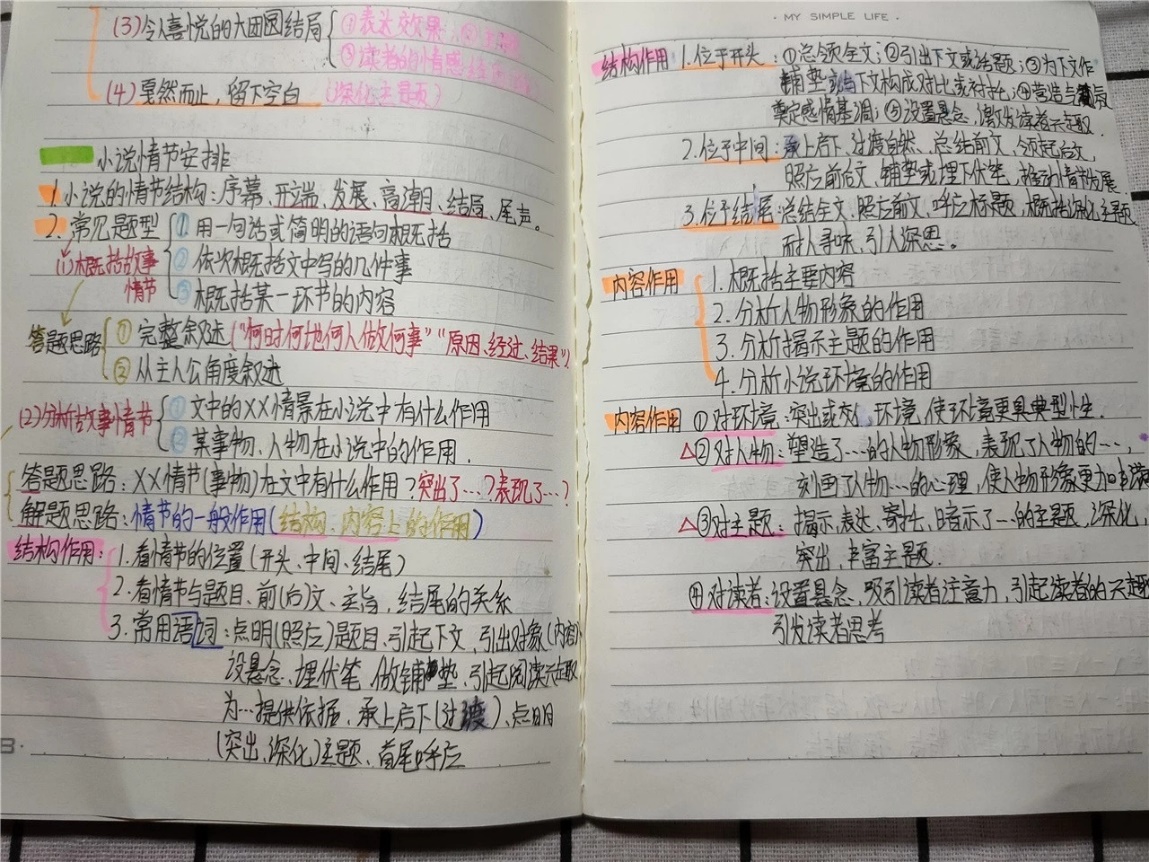 (3)令人喜悦的大团圆结局
①表达效果;②主题
③读者的情感
(4)戛然而止，留下空白 (深化主题)
小说情节安排
1.小说的情节结构：序幕、开端、发展、高潮、结局、尾声。
2.常见题型
(1)概括故事情节
①用一句话或简明的语句概括
②依次概括文中写的几件事
③概括某一环节的内容
答题思路
①完整叙述("何时何地何人做何事""原因、经过、结果")
②从主人公角度叙述
(2)分析故事情节
①文中的XX情景在小说中有什么作用
②某事物、人物在小说中的作用.
答题思路：XX情节(事物)在文中有什么作用？突出了…？表现了…？
解题思路：情节的一般作用(结构、内容上的作用)
结构作用：
1.看情节的位置(开头、中间、结尾)
2.看情节与题目、前(后)文、主旨，结尾的关系
3.常用语词：点明(照应)题目、引起下文，引出对象(内容)
设悬念、埋伏笔、做铺垫、引起阅读兴趣
为…提供依据、承上启下(过渡)、点明
(突出、深化)主题、首尾呼应
· MY SIMPLE LIFE ·
结构作用 1.位于开头：①总领全文；②引出下文或话题；③为下文作
铺垫或与下文构成对比或衬托；④营造气氛
奠定感情基调；⑤设置悬念，激发读者兴趣.
2.位于中间：承上启下，过渡自然、总结前文，领起后文，
照应前后文，铺垫或埋下伏笔，推动情节发展
3.位于结尾：总结全文、照应前文、呼应标题，概括深化主题
耐人寻味、引人深思。
内容作用
1.概括主要内容
2.分析人物形象的作用
3.分析揭示主题的作用
4.分析小说环境的作用
内容作用 ①对环境：突出或 环境，使环境更具典型性.
△②对人物：塑造了…的人物形象，表现了人物的…，
刻画了人物…的心理，使人物形象更加丰满
△③对主题：揭示、表达、寄托、暗示了…的主题，深化，
突出，丰富主题.
④对读者：设置悬念，吸引读者注意力，引起读者的兴趣
引发读者思考